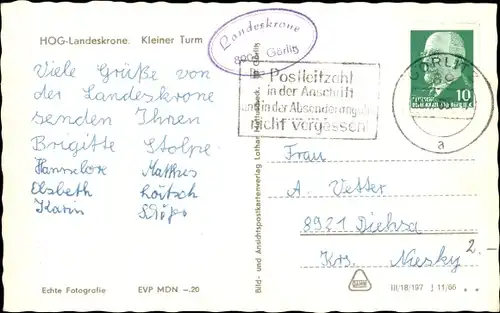 HOG-Landeskrone. Kleiner Turm
Landeskrone
Görlitz
Viele Grüße von
der Landeskrone
senden Ihnen
Brigitte Stolpe
Hannelore Matthes
Elsbeth
Karin
Echte Fotografie EVP MDN –.20
Bild- und Ansichtspostkartenverlag Lothar
Görlitz
Die Postleitzahl
in der Anschrift
und in der Absenderangabe
nicht vergessen!
GÖRLITZ
a
10
Frau
A. Vetter
8921 Diehsa
Krs. Niesky
2.-
III/18/197 J 11/66